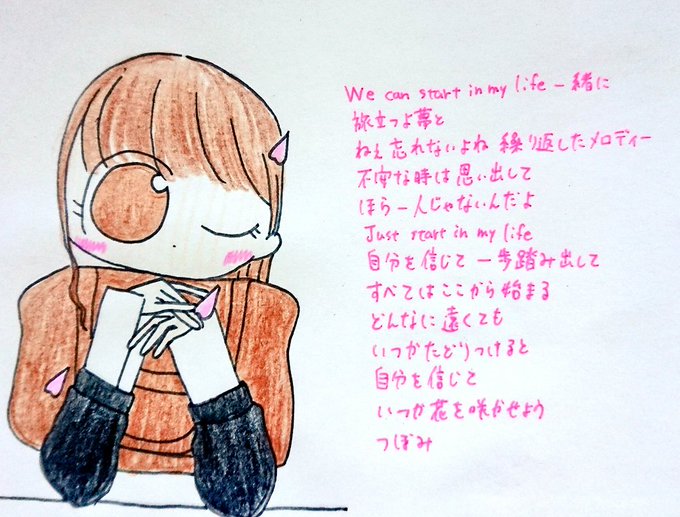 We can start in my life 一緒に
旅立つよ夢と
ねぇ忘れないよね 繰り返したメロディー
不安な時は思い出して
ほら一人じゃないんだよ
Just start in my life
自分を信じて 一歩踏み出して
すべてはここから始まる
どんなに遠くても
いつかたどりつけると
自分を信じて
いつか花を咲かせよう
つぼみ